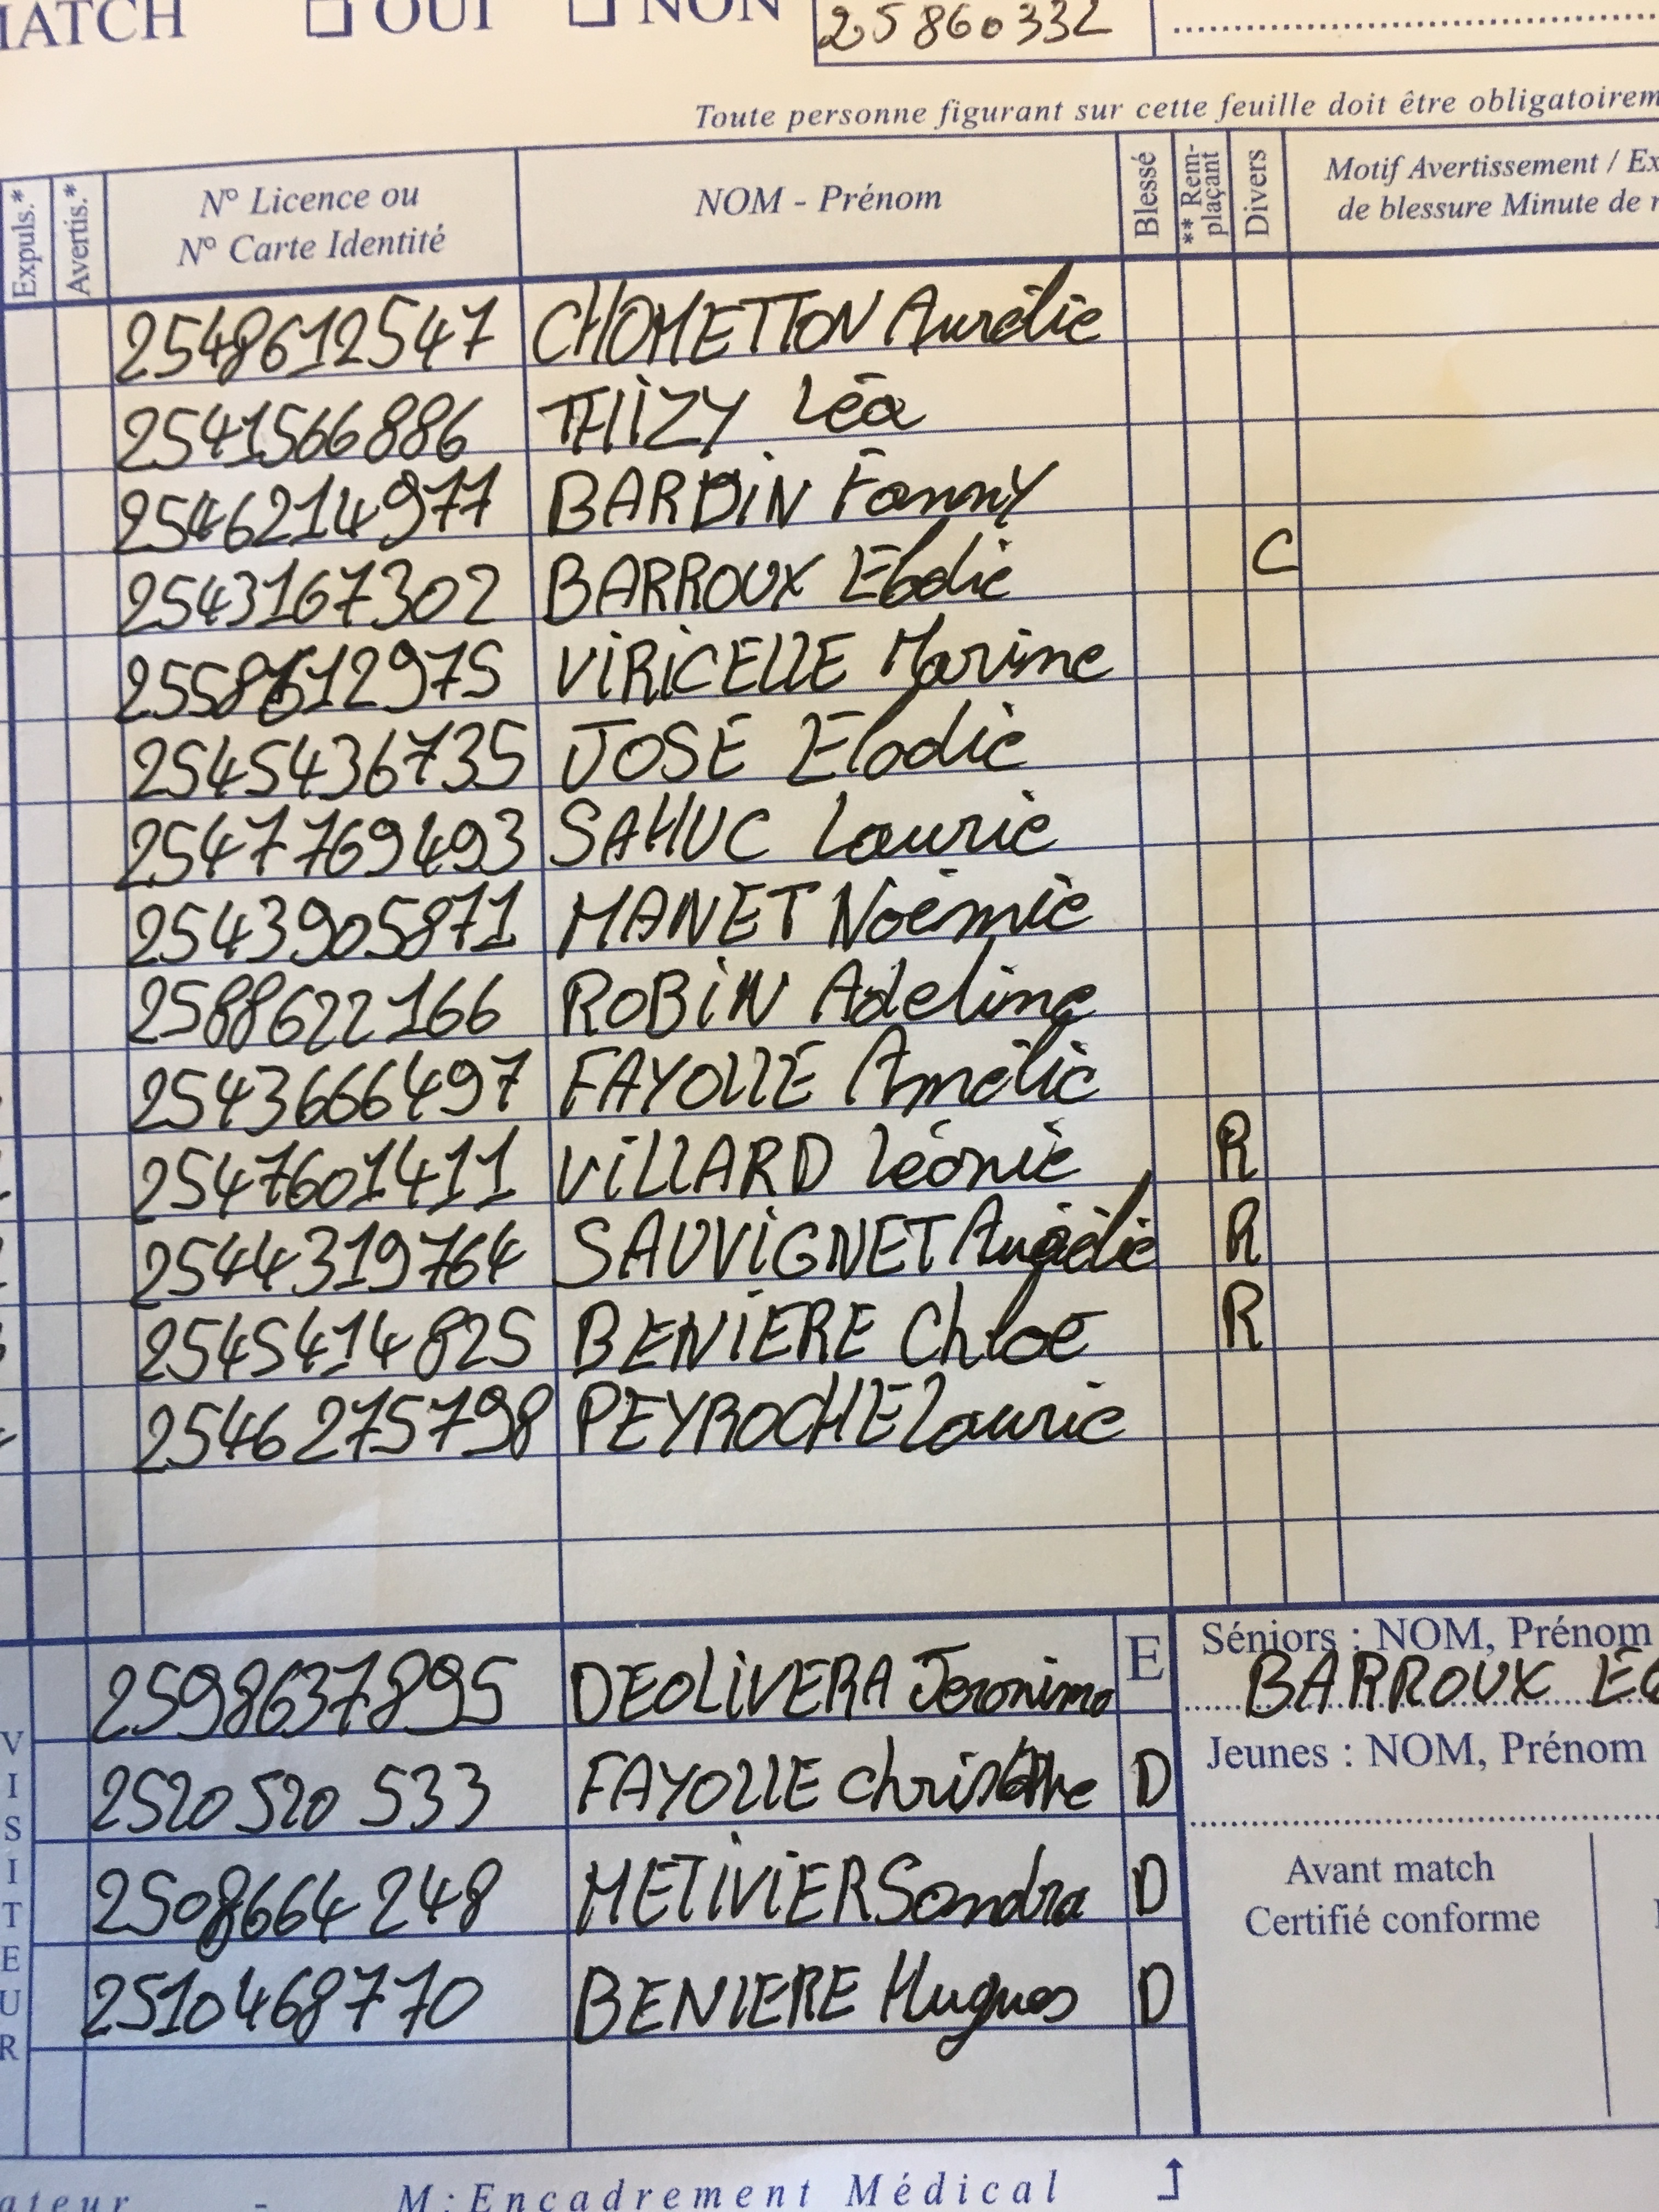 MATCH OUI NON 25860332
Toute personne figurant sur cette feuille doit être obligatoirem
Expuls.* Avertis.* N° Licence ou N° Carte Identité NOM - Prénom Blessé ** Rem-plaçant Divers Motif Avertissement / Ex
de blessure Minute de r
2548612547 CHOMETTON Aurélie
2541566886 THIZY Léa
2546214977 BARDIN Fanny
2543167302 BARROUX Elodie C
2558612975 VIRICELLE Marine
2545436735 JOSE Elodie
2547769493 SAHUC Laurie
2543905871 MANET Noémie
2588622166 ROBIN Adeline
2543666497 FAYOLLE Amélie
2547601411 VILLARD Léonie R
2544319764 SAUVIGNET Aurélie R
2545414825 BENIERE Chloé R
2546275798 PEYROCHE Laurie
VISITEUR
2598637895 DEOLIVERA Jeronimo E
Séniors : NOM, Prénom
BARROUX
2520520533 FAYOLLE Christophe D
Jeunes : NOM, Prénom
2508664248 METIVIER Sandra D
Avant match
Certifié conforme
2510468770 BENIERE Hugues D
ateur - M : Encadrement Médical